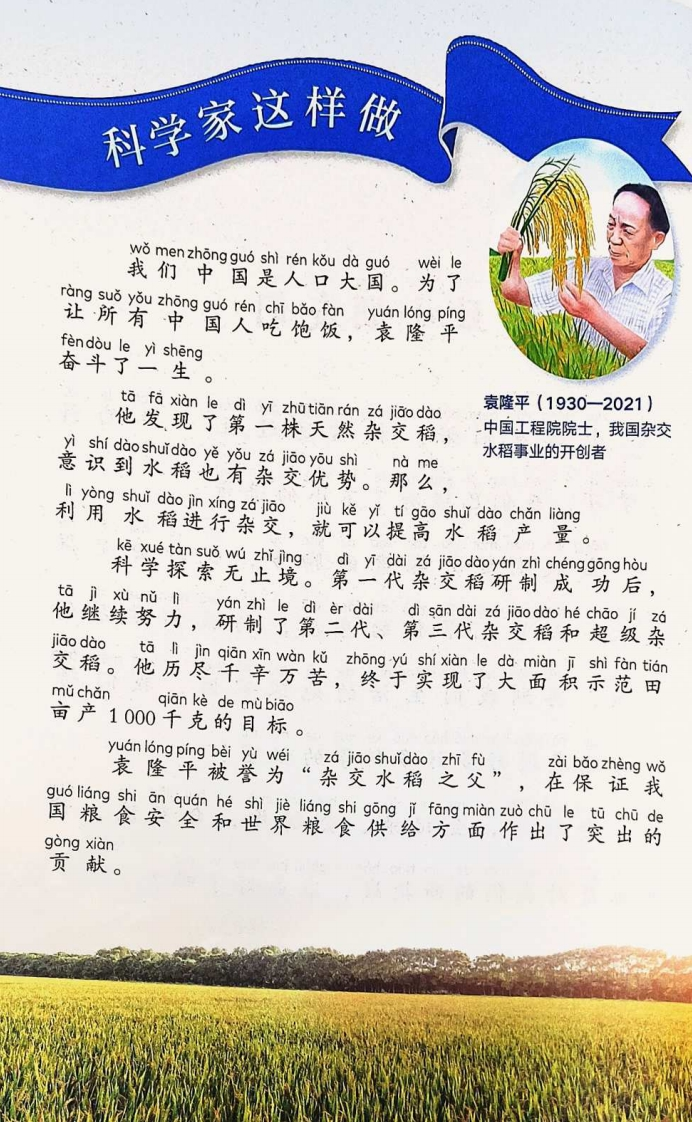 科学家这样做
wǒ men zhōng guó shì rén kǒu dà guó wèi le
我们中国是人口大国。为了
ràng suǒ yǒu zhōng guó rén chī bǎo fàn yuán lóng píng
让所有中国人吃饱饭，袁隆平
fèn dòu le yì shēng
奋斗了一生。
袁隆平（1930—2021）
中国工程院院士，我国杂交
水稻事业的开创者
tā fā xiàn le dì yī zhū tiān rán zá jiāo dào
他发现了第一株天然杂交稻，
yì shí dào shuǐ dào yě yǒu zá jiāo yōu shì nà me
意识到水稻也有杂交优势。那么，
lì yòng shuǐ dào jìn xíng zá jiāo jiù kě yǐ tí gāo shuǐ dào chǎn liàng
利用水稻进行杂交，就可以提高水稻产量。
kē xué tàn suǒ wú zhǐ jìng dì yī dài zá jiāo dào yán zhì chéng gōng hòu
科学探索无止境。第一代杂交稻研制成功后，
tā jì xù nǔ lì yán zhì le dì èr dài dì sān dài zá jiāo dào hé chāo jí zá
他继续努力，研制了第二代、第三代杂交稻和超级杂
jiāo dào tā lì jìn qiān xīn wàn kǔ zhōng yú shí xiàn le dà miàn jī shì fàn tián
交稻。他历尽千辛万苦，终于实现了大面积示范田
mǔ chǎn qiān kè de mù biāo
亩产1000千克的目标。
yuán lóng píng bèi yù wéi zá jiāo shuǐ dào zhī fù zài bǎo zhèng wǒ
袁隆平被誉为“杂交水稻之父”，在保证我
guó liáng shi ān quán hé shì jiè liáng shi gōng jǐ fāng miàn zuò chū le tū chū de
国粮食安全和世界粮食供给方面作出了突出的
gòng xiàn
贡献。